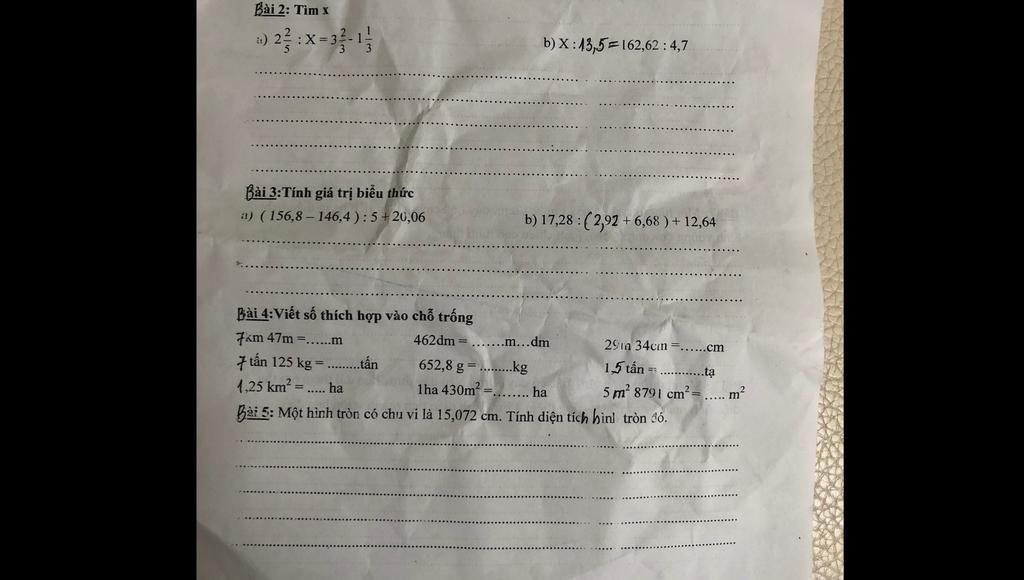 Bài 2: Tìm x
a) 2 2/5 : X = 3 2/3 - 1 1/3 b) X : 13,5 = 162,62 : 4,7
Bài 3:Tính giá trị biểu thức
a) ( 156,8 – 146,4 ) : 5 + 20,06 b) 17,28 : ( 2,92 + 6,68 ) + 12,64
Bài 4:Viết số thích hợp vào chỗ trống
7km 47m =......m 462dm = .......m...dm 29m 34cm =......cm
7 tấn 125 kg = .........tấn 652,8 g = .........kg 1,5 tấn = ............tạ
1,25 km² = ..... ha 1ha 430m² =........ ha 5 m² 8791 cm² = ..... m²
Bài 5: Một hình tròn có chu vi là 15,072 cm. Tính diện tích hình tròn đó.